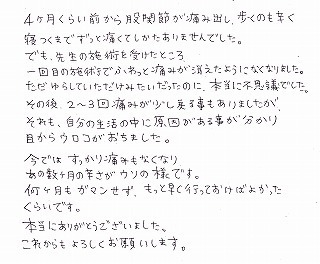 4ヶ月くらい前から股関節が痛み出し、歩くのも辛く
寝つくまでずっと痛くてしかたありませんでした。
でも、先生の施術を受けたところ
一回目の施術でふわっと痛みが消えたようになくなりました。
ただゆらしていただけみたいだったのに、本当に不思議でした。
その後、2〜3回痛みが少し戻る事もありましたが
それも、自分の生活の中に原因がある事が分かり
目からウロコがおちました。
今では すっかり痛みもなくなり
あの数ヶ月の辛さがウソの様です。
何ヶ月もガマンせず、もっと早く行っておけばよかった
くらいです。
本当にありがとうございました。
これからもよろしくお願いします。